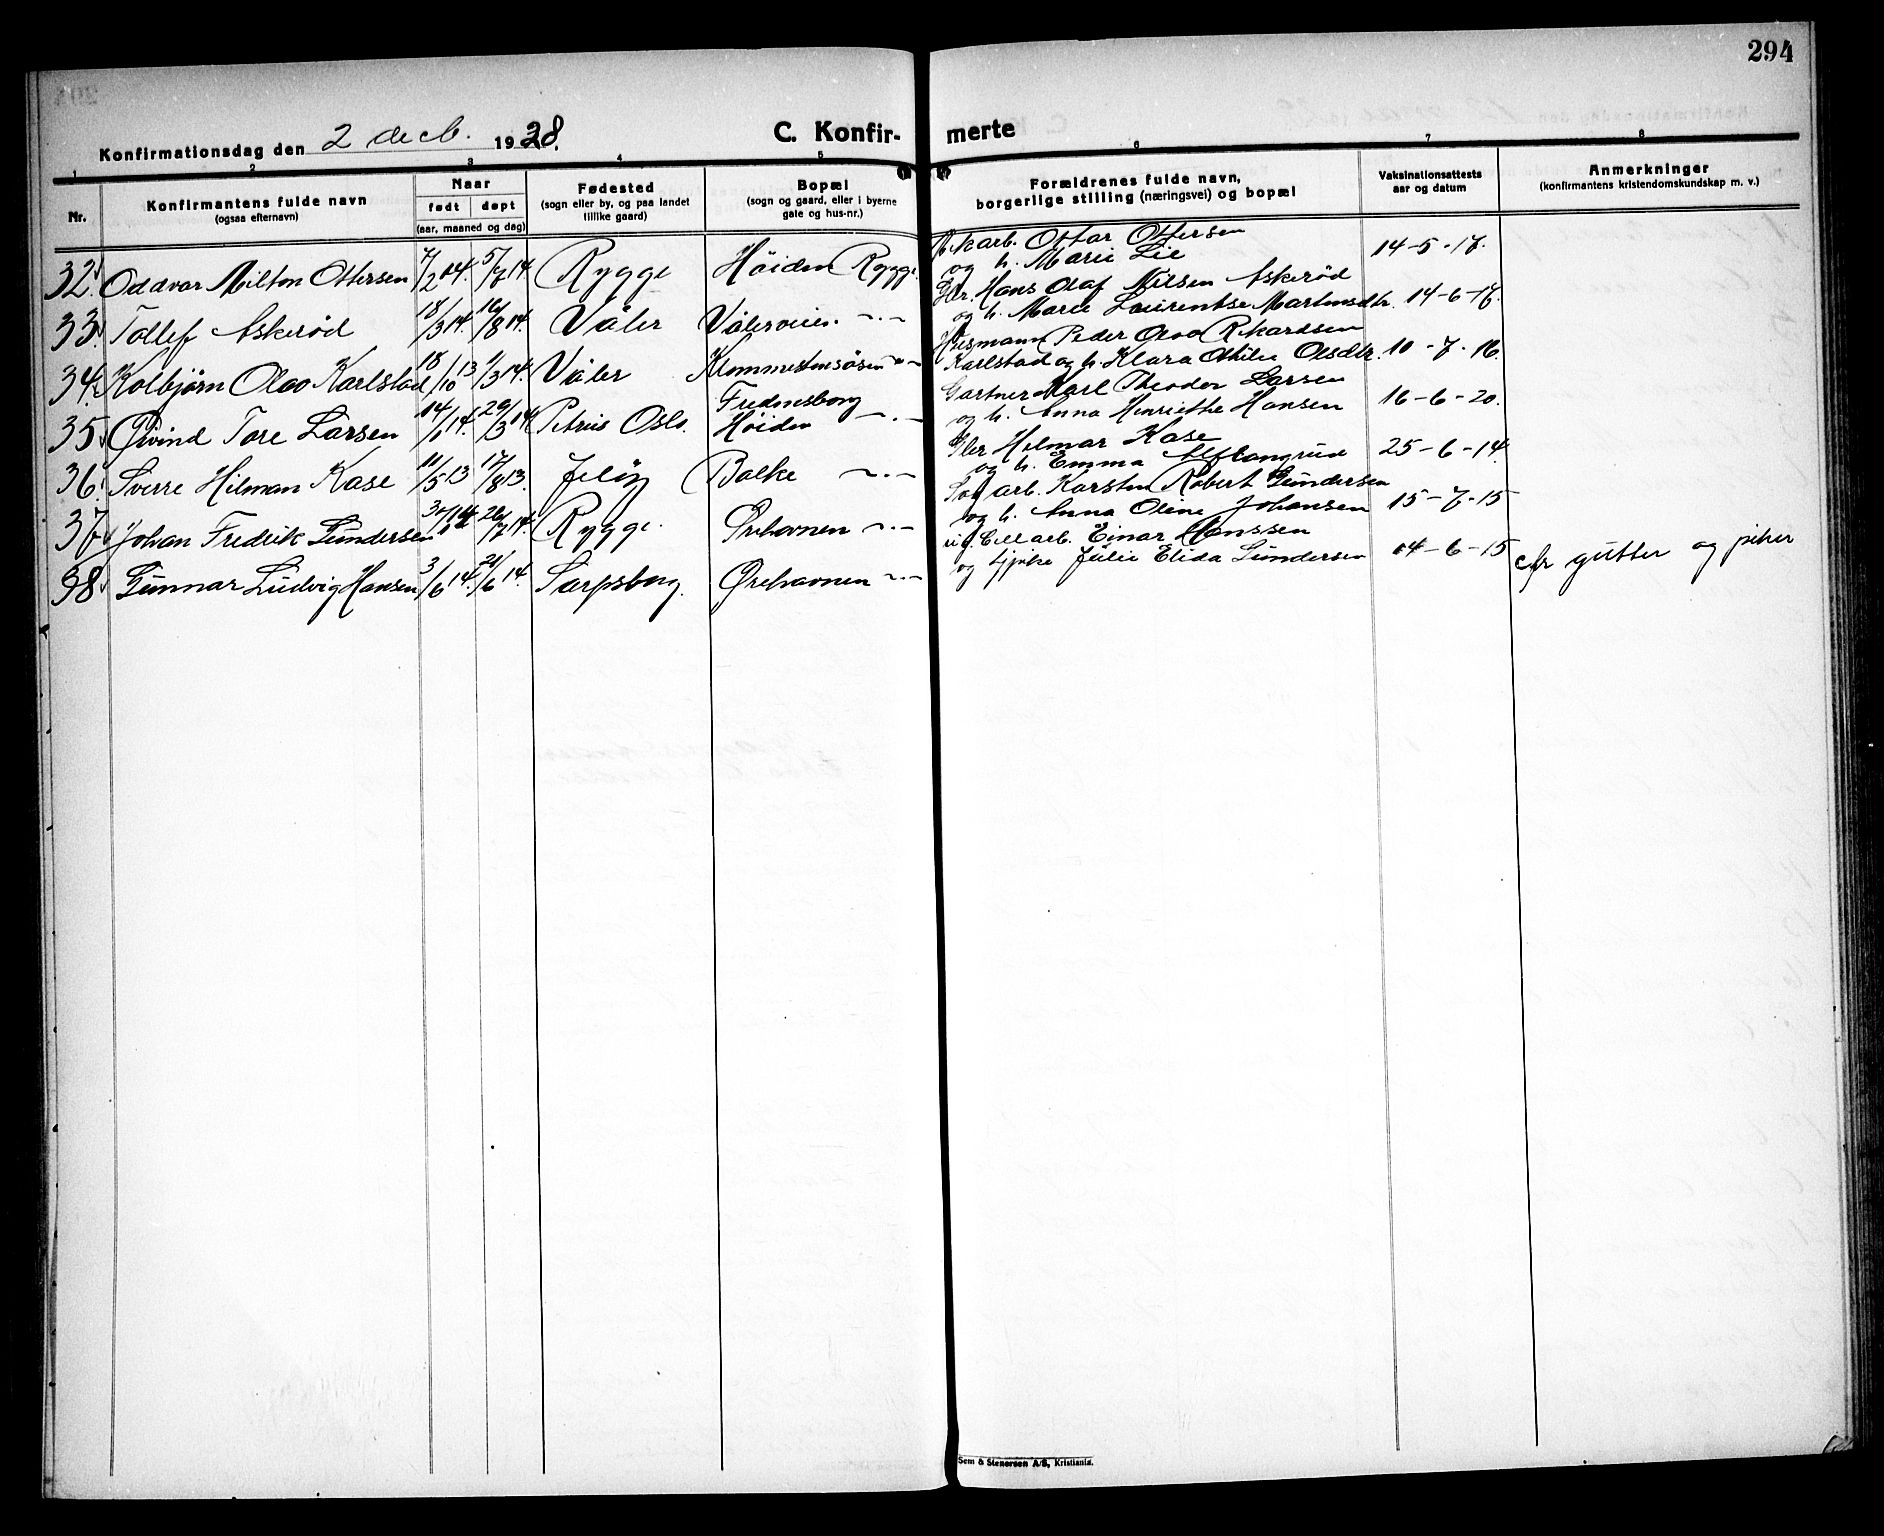 294
Konfirmationsdag den 2 decb. 1928.
C. Konfir- merte
1 2 3 4 5 6 7 8
Nr.
Konfirmantens fulde navn
(ogsaa efternavn)
Naar
født døpt
(aar, maaned og dag)
Fødested
(sogn eller by, og paa landet
tillike gaard)
Bopæl
(sogn og gaard, eller i byerne
gate og hus-nr.)
Forældrenes fulde navn,
borgerlige stilling (næringsvei) og bopæl
Vaksinationsattests
aar og datum
Anmerkninger
(konfirmantens kristendomskundskap m. v.)
32. Oddvar Milton Ottersen 7/2 04. 5/7 14. Rygge Höiden Rygge. arb. Ottar Ottersen
og h. Marie Lie 14-5-17.
33. Tollef Askerød 18/3 14. 16/8 14. Våler Vålerveien -"- Hans Olaf Nilsen Askerød
og h. Marie Laurentse Martinsdtr. 14-6-17.
34. Kolbjørn Olav Karlstad 18/10 13 1/3 14. Våler -"- Husmann Peder Olav Rikardsen
Karlstad og h. Klara Othilie Olsdtr. 10-7-16.
35. Øivind Tore Larsen 14/1 14. 29/3 14. Petrus Oslo. Fredensborg
Höiden -"- Gartner Karl Theodor Larsen
og h. Anna Henriette Hansen 16-6-20.
36. Sverre Hilman Kase 11/5 13 17/8 13. Jeløy Balke -"- Hilmar Kase
og h. Emma 25-6-14.
37. Johan Fredrik Gundersen 26/7 14. Rygge. Ørehavnen -"- arb. Karsten Robert Gundersen
og h. Anna Oline Johansen 15-7-15
38. Gunnar Ludvig Hansen 3/6 14. 21/6 14. Sarpsborg. Ørehavnen -"- ug. Cell arb. Einar Hanssen
og tjpike Julie Elida Gundersen 14-6-15 cfr gutter og piker
Sem & Stenersen A/S, Kristiania.